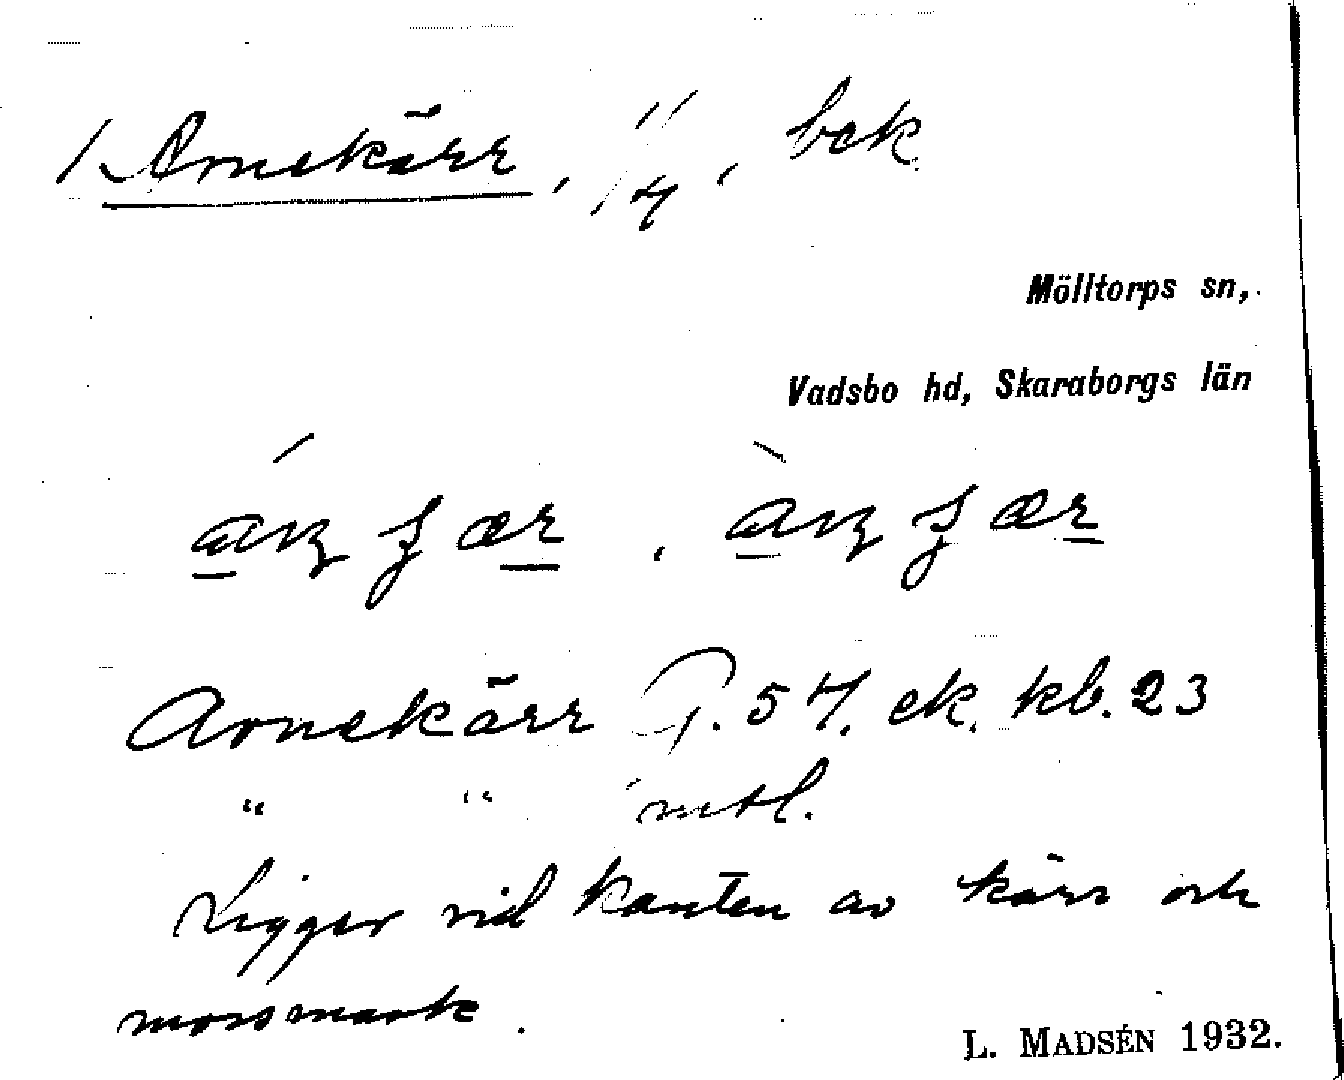 1 Arnekärr, 1/4, bek
Mölltorps sn,
Vadsbo hd, Skaraborgs län
Arnekärr P. 57. ek. kb. 23
" " mtl.
Ligger vid kanten av kärr och
mossmark.
L. MADSÉN 1932.